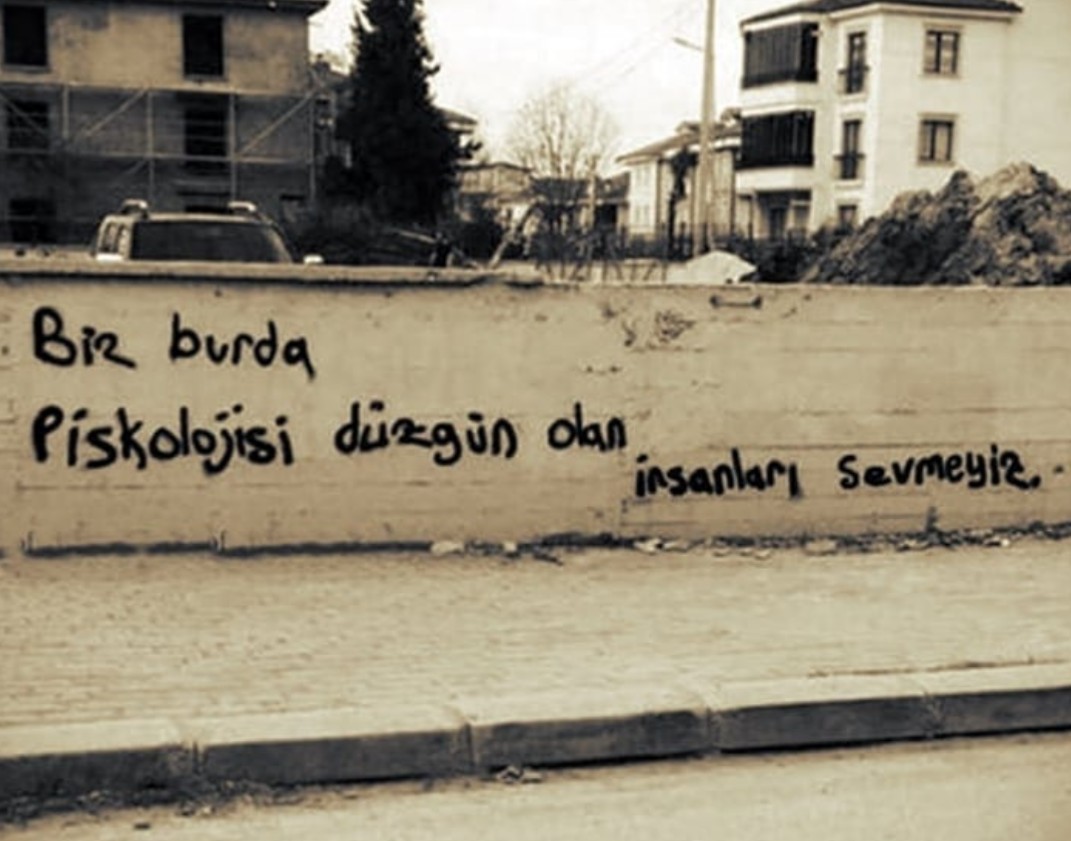 Biz burda
Piskolojisi düzgün olan
insanları sevmeyiz.